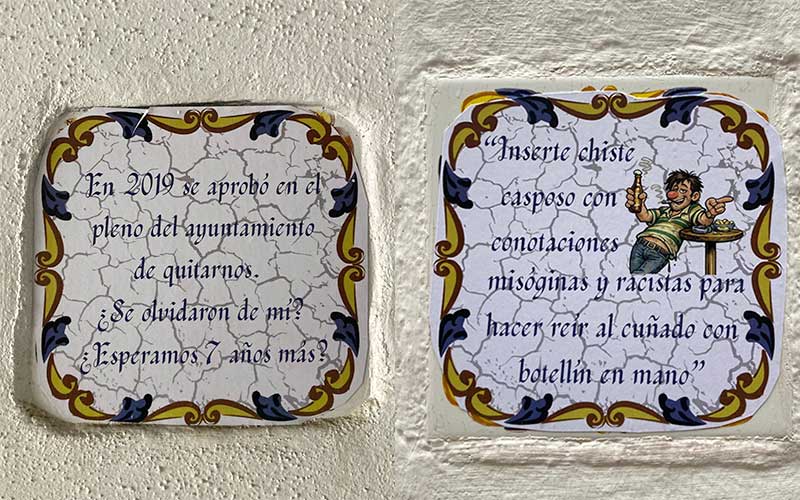 En 2019 se aprobó en el
pleno del ayuntamiento
de quitarnos.
¿Se olvidaron de mí?
¿Esperamos 7 años más?
“Inserte chiste
casposo con
conotaciones
misóginas y racistas para
hacer reír al cuñado con
botellín en mano”